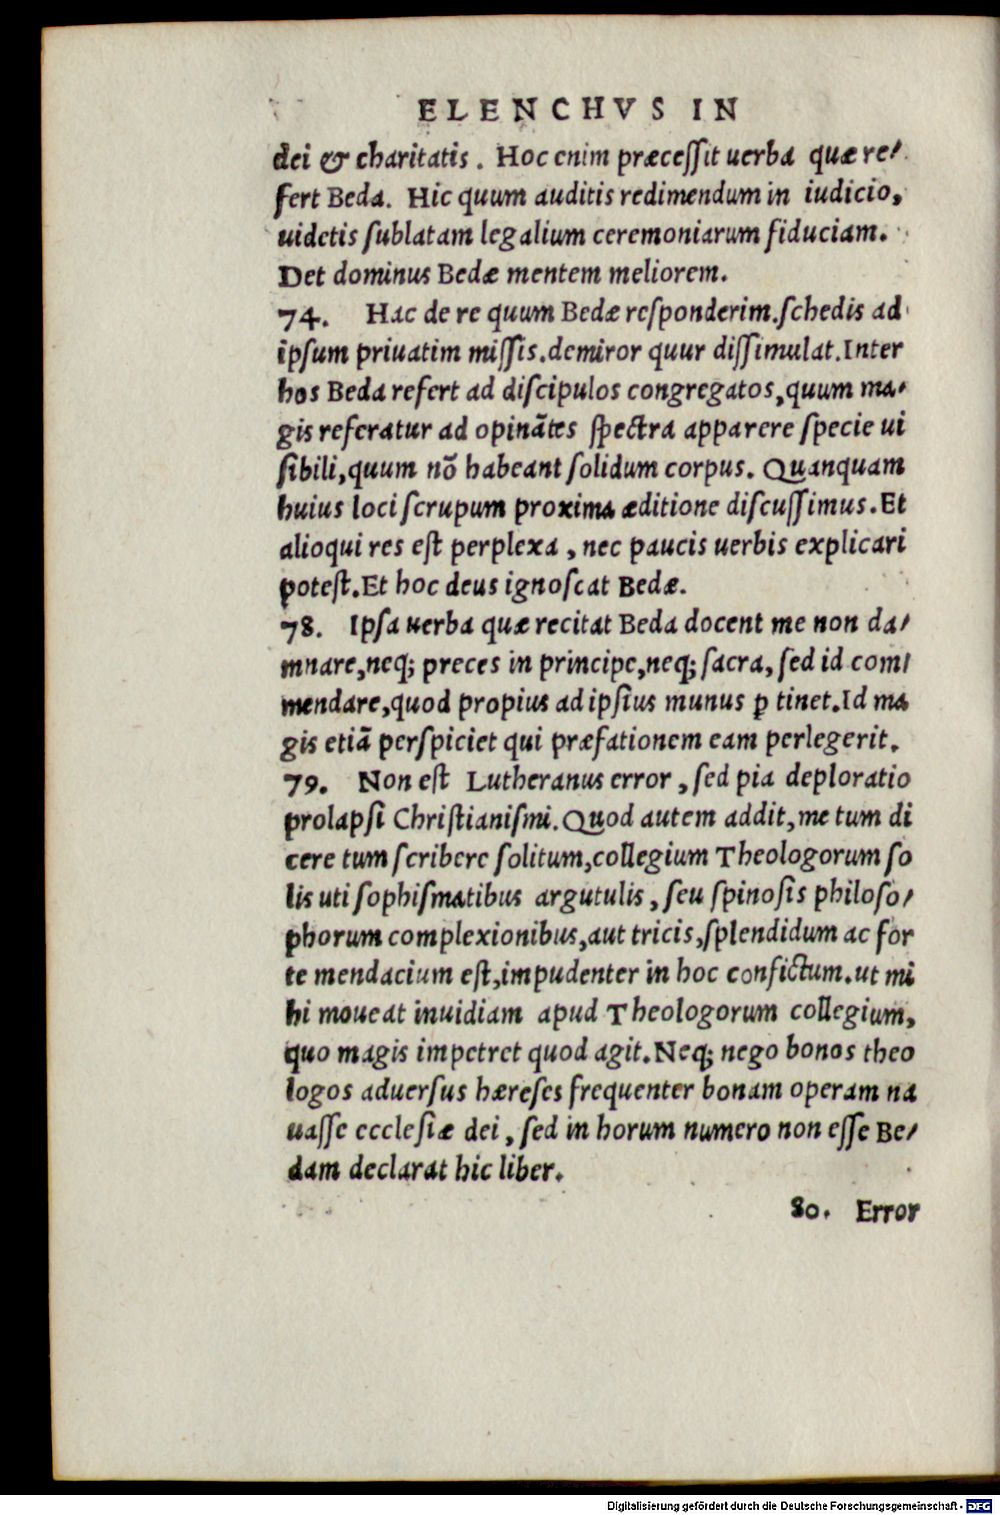 ELENCHVS IN
dei & charitatis. Hoc enim præcessit uerba quæ re/
fert Beda. Hic quum auditis redimendum in iudicio,
uidetis sublatam legalium ceremoniarum fiduciam.
Det dominus Bedæ mentem meliorem.
74. Hac de re quum Bedæ responderim.schedis ad
ipsum priuatim missis.demiror quur dissimulat.Inter
hos Beda refert ad discipulos congregatos,quum ma/
gis referatur ad opinãtes spectra apparere specie ui
sibili,quum nõ habeant solidum corpus. Quanquam
huius loci scrupum proxima æditione discussimus.Et
alioqui res est perplexa, nec paucis uerbis explicari
potest.Et hoc deus ignoscat Bedæ.
78. Ipsa uerba quæ recitat Beda docent me non da/
mnare,neq; preces in principe,neq; sacra, sed id com/
mendare,quod propius ad ipsius munus ꝑ tinet.Id ma
gis etiã perspiciet qui præfationem eam perlegerit.
79. Non est Lutheranus error, sed pia deploratio
prolapsi Christianismi.Quod autem addit,me tum di
cere tum scribere solitum,collegium Theologorum so
lis uti sophismatibus argutulis, seu spinosis philoso/
phorum complexionibus,aut tricis,splendidum ac for
te mendacium est,impudenter in hoc confictum.ut mi
hi moueat inuidiam apud Theologorum collegium,
quo magis impetret quod agit.Neq; nego bonos theo
logos aduersus hæreses frequenter bonam operam na
uasse ecclesiæ dei, sed in horum numero non esse Be/
dam declarat hic liber.
80. Error
Digitalisierung gefördert durch die Deutsche Forschungsgemeinschaft - DFG